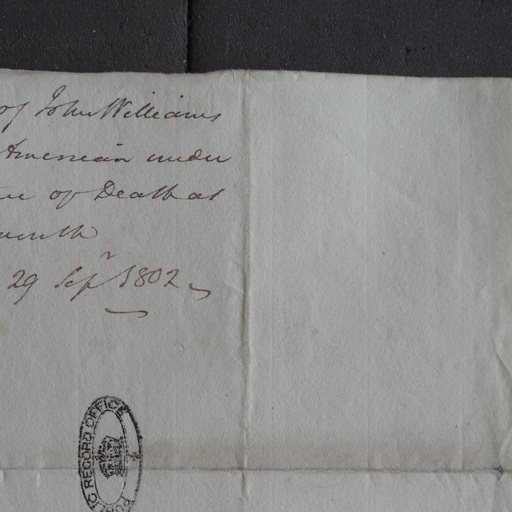 of John Williams
American under
of Death at
29 Sepr. 1802
PUBLIC RECORD OFFICE